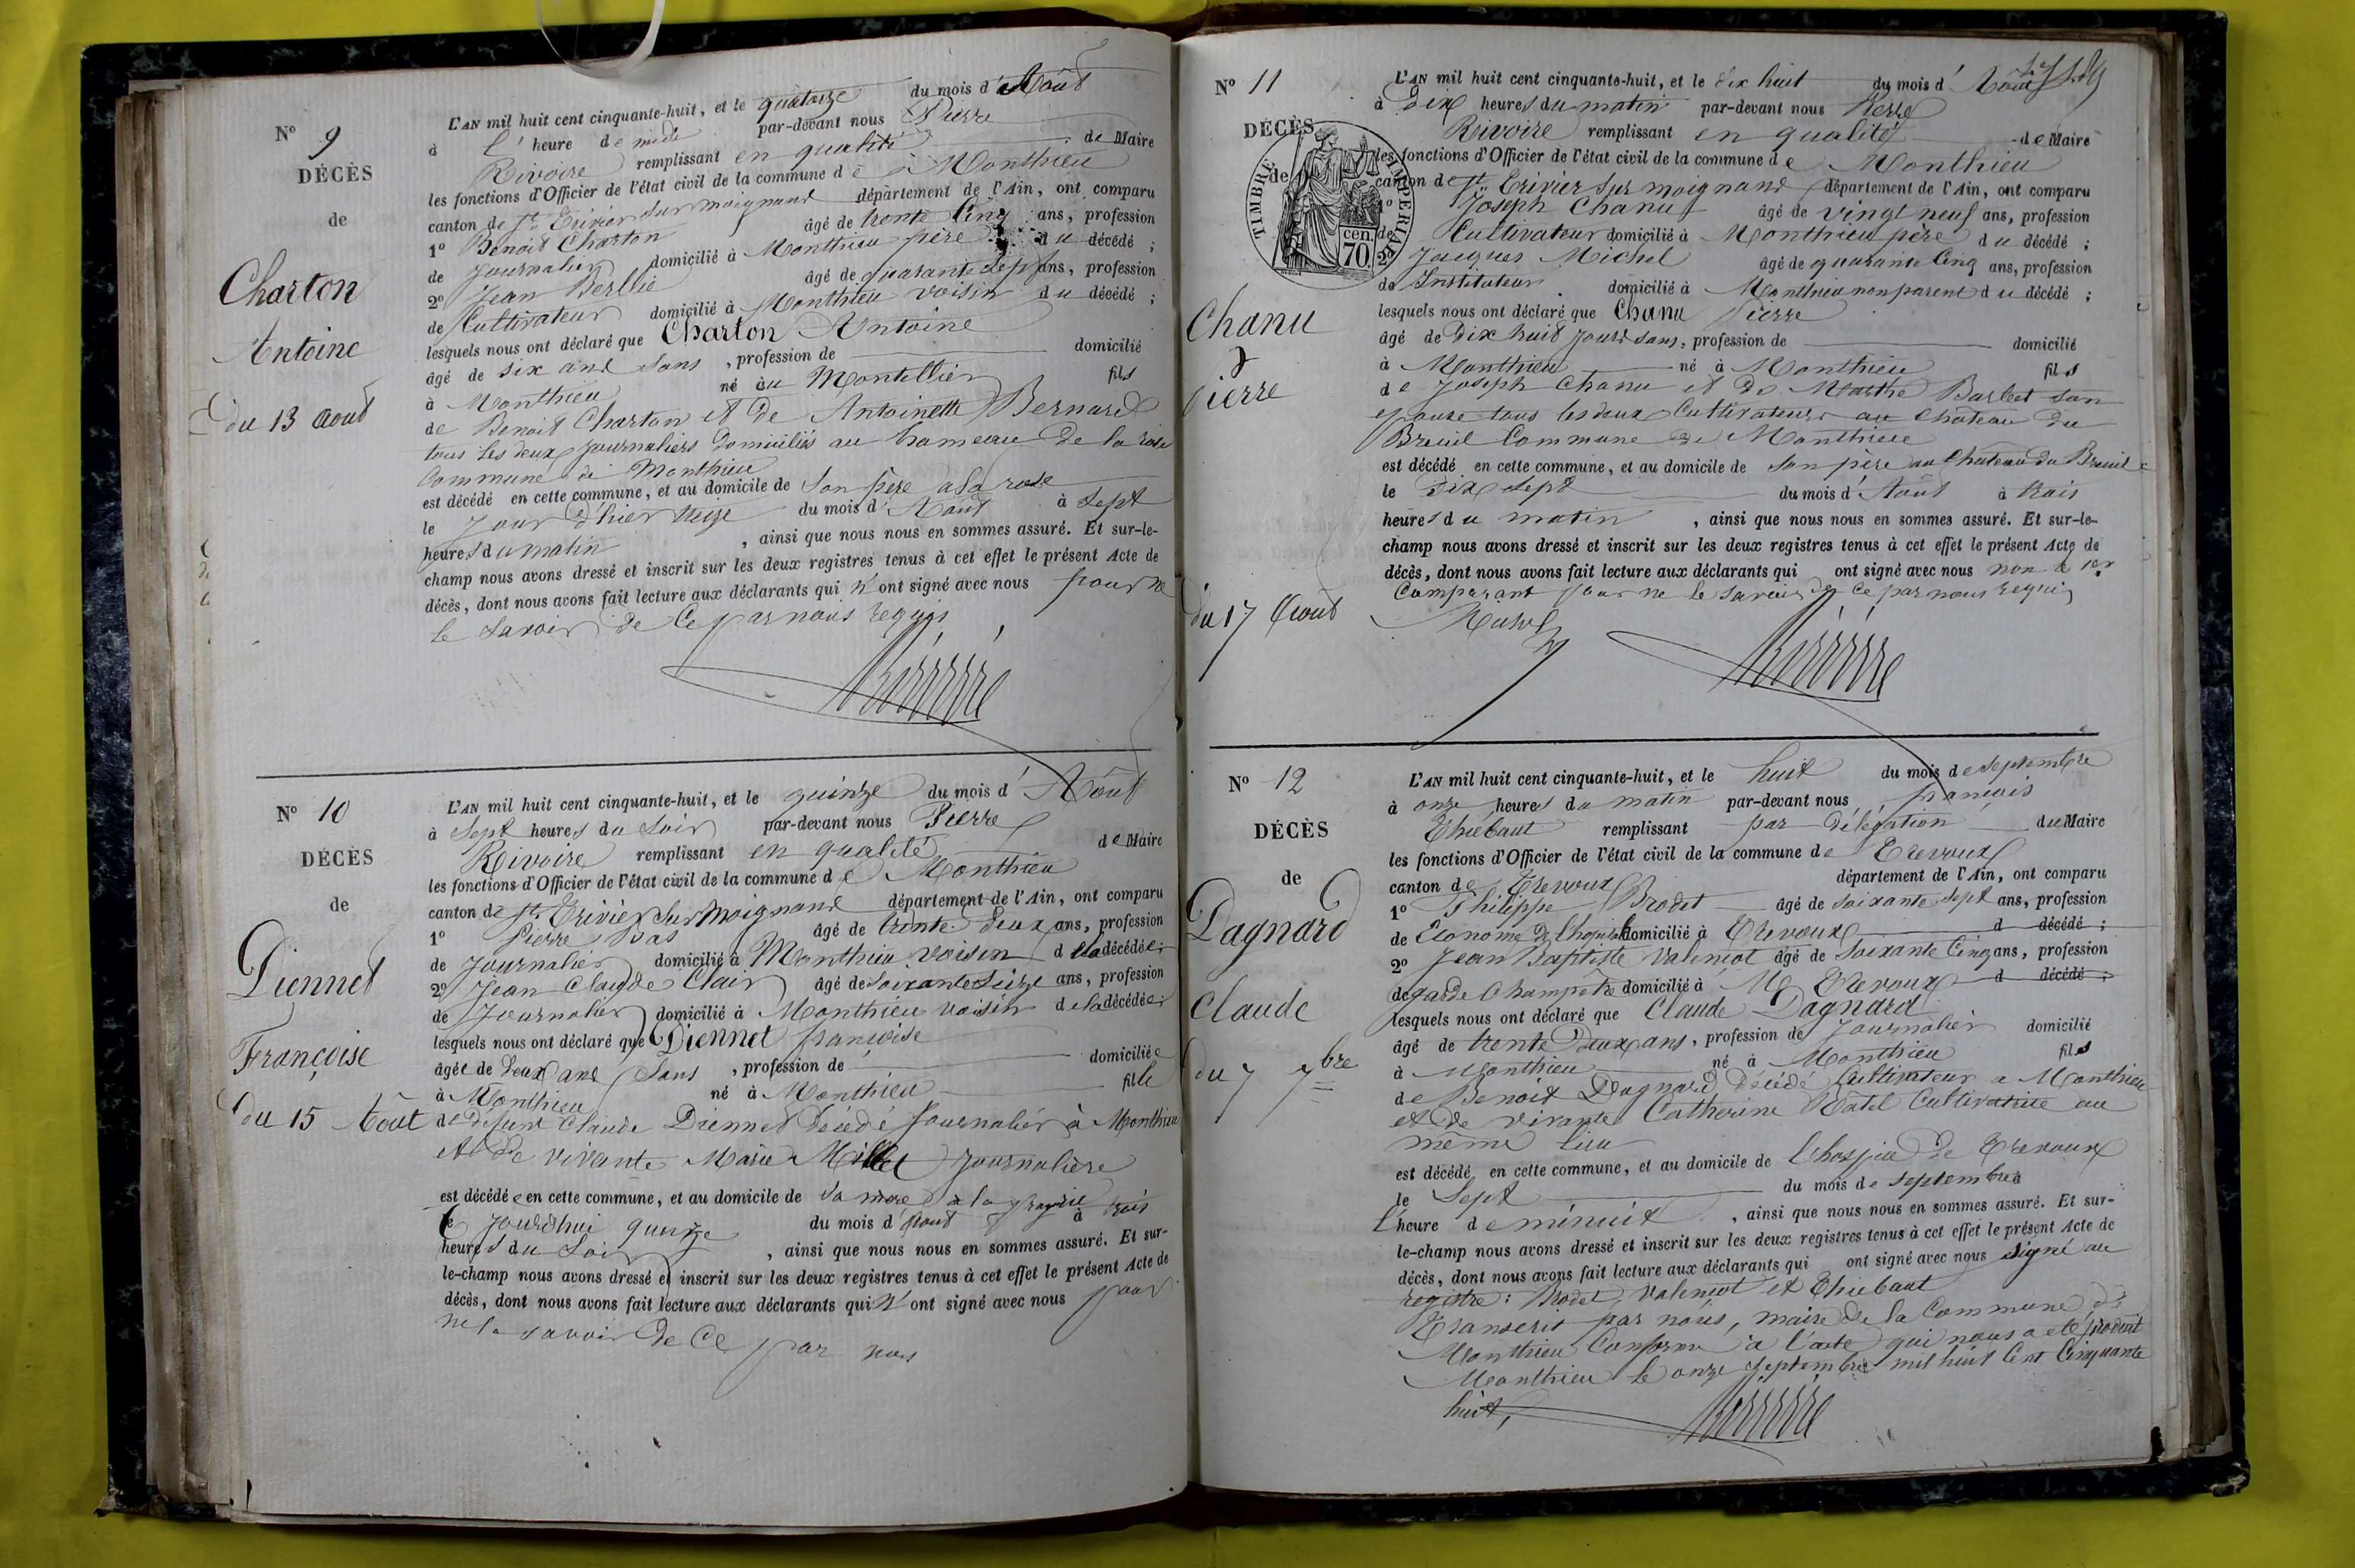 N° 9
DÉCÈS
de
Charton
Antoine
du 13 Aout
L'AN mil huit cent cinquante-huit, et le quatorze du mois d'Aout
à l'heure de midi par-devant nous Pierre
Rivoire remplissant en qualité de Maire
les fonctions d'Officier de l'état civil de la commune de Monthieu
canton de St Trivier sur moignand département de l'Ain, ont comparu
1° Benoit Charton âgé de trente Cinq ans, profession
de Journalier domicilié à Monthieu père du décédé ;
2° Jean Berllie âgé de quarante sept ans, profession
de Cultivateur domicilié à Monthieu voisin du décédé ;
lesquels nous ont déclaré que Charton Antoine
âgé de six ans sans , profession de domicilié
à Monthieu né au Montellier fils
de Benoit Charton et de Antoinette Bernard
tous les deux Journaliers domiciliés au hameau de la rose
Commune de Monthieu
est décédé en cette commune, et au domicile de son père à la rose
le jour d'hier treize du mois d'Aout à sept
heures du matin , ainsi que nous nous en sommes assuré. Et sur-le-
champ nous avons dressé et inscrit sur les deux registres tenus à cet effet le présent Acte de
décès, dont nous avons fait lecture aux déclarants qui n'ont signé avec nous pour ne
le savoir de ce par nous requis
Rivoire
N° 10
DÉCÈS
de
Diennet
Françoise
du 15 Aôut
L'AN mil huit cent cinquante-huit, et le quinze du mois d'Aôut
à Sept heures du soir par-devant nous Pierre
Rivoire remplissant en qualité de Maire
les fonctions d'Officier de l'état civil de la commune de Monthieu
canton de St Trivier sur Moignand département de l'Ain, ont comparu
1° Pierre Bas âgé de trente deux ans, profession
de Journalier domicilié à Monthieu voisin de la décédée ;
2° Jean Claude Clair âgé de soixante Seize ans, profession
de Journalier domicilié à Monthieu voisin de la décédée ;
lesquels nous ont déclaré que Diennet françoise
âgée de Deux ans Sans , profession de domiciliée
à Monthieu né à Monthieu fille
de défunt Claude Diennet Décédé Journalier à Monthieu
et de vivante Marie Millet Journalière
est décédée en cette commune, et au domicile de sa mère à la
le jourdhui quinze du mois d'Aout à trois
heures du Soir , ainsi que nous nous en sommes assuré. Et sur-
le-champ nous avons dressé et inscrit sur les deux registres tenus à cet effet le présent Acte de
décès, dont nous avons fait lecture aux déclarants qui n'ont signé avec nous pour
ne le savoir de ce par nous
N° 11
DÉCÈS
de
TIMBRE IMPERIAL
70 cen.
Chanu
Pierre
du 17 Aout
L'AN mil huit cent cinquante-huit, et le dix huit du mois d'Aout
à Dix heures du matin par-devant nous Pierre
Rivoire remplissant en qualité de Maire
les fonctions d'Officier de l'état civil de la commune de Monthieu
canton de St Trivier sur moignand département de l'Ain, ont comparu
1° Joseph Chanu âgé de vingt neuf ans, profession
de Cultivateur domicilié à Monthieu père du décédé ;
2° Jacques Michel âgé de quarante Cinq ans, profession
de Instituteur domicilié à Monthieu non parent du décédé ;
lesquels nous ont déclaré que Chanu Pierre
âgé de Dix huit jours sans, profession de domicilié
à Monthieu né à Monthieu fils
de Joseph Chanu et de Marthe Barbet son
epouse tous les deux Cultivateurs au Château du
Breuil Commune de Monthieu
est décédé en cette commune, et au domicile de son père au Chateau du Breuil
le dix sept du mois d'Aout à trois
heures du matin , ainsi que nous nous en sommes assuré. Et sur-le-
champ nous avons dressé et inscrit sur les deux registres tenus à cet effet le présent Acte de
décès, dont nous avons fait lecture aux déclarants qui ont signé avec nous non le 1er
Comparant pour ne le savoir de ce par nous requis
Michel
Rivoire
N° 12
DÉCÈS
de
Dagnard
Claude
du 7 7bre
L'AN mil huit cent cinquante-huit, et le huit du mois de septembre
à onze heures du matin par-devant nous françois
Thiebaut remplissant par délégation du Maire
les fonctions d'Officier de l'état civil de la commune de Trevoux
canton de Trevoux département de l'Ain, ont comparu
1° Philippe Brodet âgé de soixante sept ans, profession
de Econome de lhopital domicilié à Trevoux d décédé ;
2° Jean Baptiste Valeniot âgé de Soixante Cinq ans, profession
de garde Champêtre domicilié à Trevoux d décédé ;
lesquels nous ont déclaré que Claude Dagnard
âgé de trente Deux ans, profession de Journalier domicilié
à Monthieu né à Monthieu fils
de Benoit Dagnard Décédé Cultivateur a Monthieu
et de vivante Catherine Natel Cultivatrice au
même lieu
est décédé en cette commune, et au domicile de lhospice de Trevoux
le Sept du mois de septembre à
l'heure de minuit , ainsi que nous nous en sommes assuré. Et sur-
le-champ nous avons dressé et inscrit sur les deux registres tenus à cet effet le présent Acte de
décès, dont nous avons fait lecture aux déclarants qui ont signé avec nous signé au
registre : Brodet, Valeniot et Thiebaut
Transcrit par nous, maire de la Commune de
Monthieu Conforme à l'acte qui nous a été produit
Monthieu le onze septembre mil huit Cent Cinquante
huit,
Rivoire